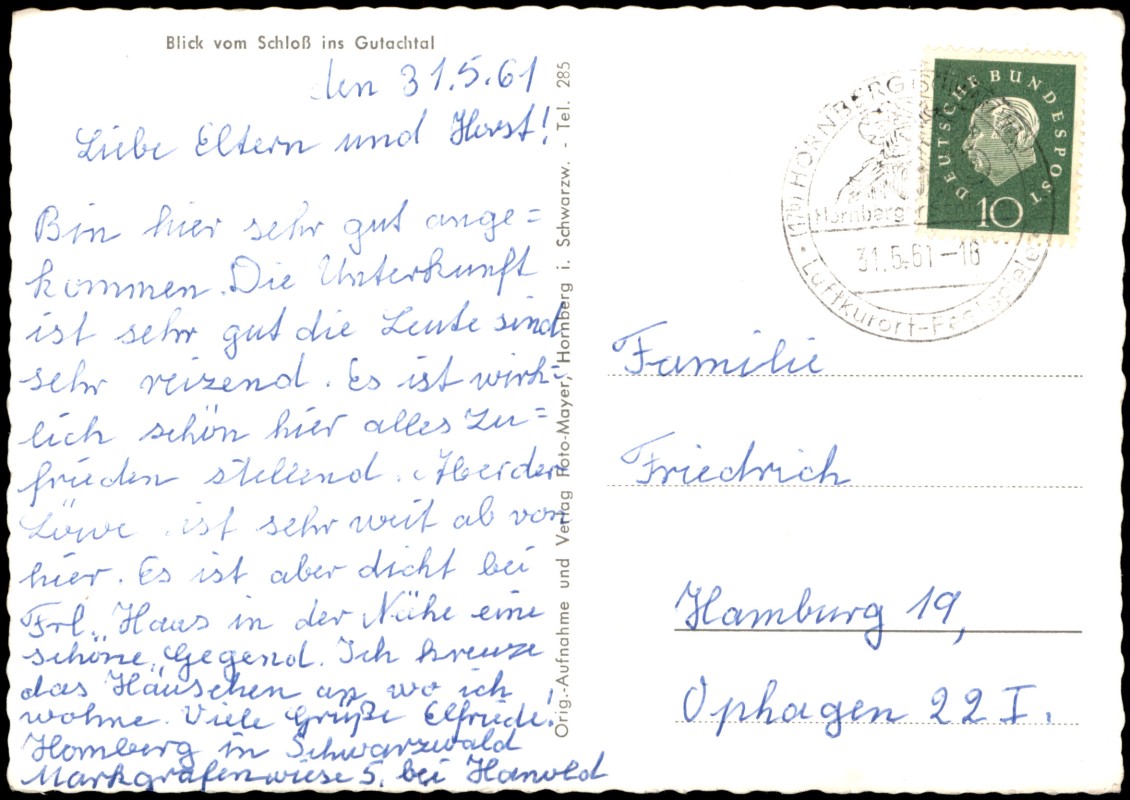 Blick vom Schloß ins Gutachtal
den 31.5.61
Liebe Eltern und Horst!
Bin hier sehr gut ange=
kommen. Die Unterkunft
ist sehr gut die Leute sind
sehr reizend. Es ist wirk=
lich schön hier alles Zu=
frieden stellend. Aber der
Löwe ist sehr weit ab von
hier. Es ist aber dicht bei
Frl. Haas in der Nähe eine
schöne Gegend. Ich kreuze
das Häuschen an wo ich
wohne. Viele Grüße Elfriede!
Hornberg in Schwarzwald
Markgrafenwiese 5. bei
Orig.-Aufnahme und Verlag Foto-Mayer, Hornberg i. Schwarzw. - Tel. 285
HORNBERG
Hornberger
31.5.61-18
Luftkurort-Festspiele
DEUTSCHE BUNDESPOST
10
Familie
Friedrich
Hamburg 19,
Ophagen 22 I.